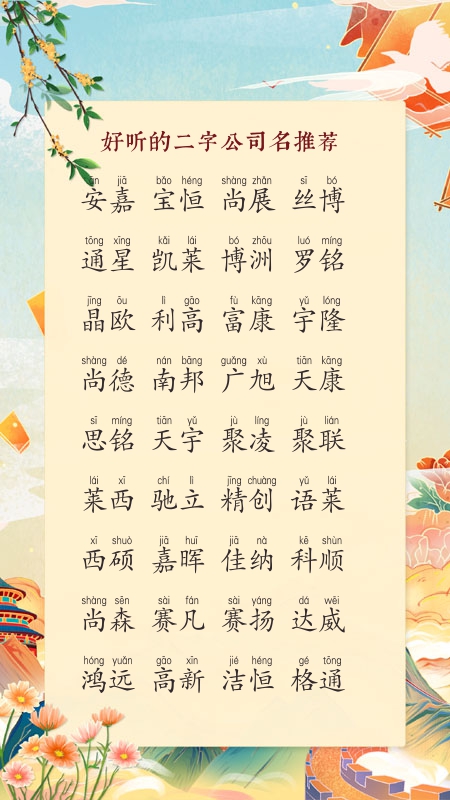 好听的二字公司名推荐
ān jiā bǎo héng shàng zhǎn sī bó
安嘉 宝恒 尚展 丝博
tōng xīng kǎi lái bó zhōu luó míng
通星 凯莱 博洲 罗铭
jīng ōu lì gāo fù kāng yǔ lóng
晶欧 利高 富康 宇隆
shàng dé nán bāng guǎng xù tiān kāng
尚德 南邦 广旭 天康
sī míng tiān yǔ jù líng jù lián
思铭 天宇 聚凌 聚联
lái xī chí lì jīng chuàng yǔ lái
莱西 驰立 精创 语莱
xī shuò jiā huī jiā nà kē shùn
西硕 嘉晖 佳纳 科顺
shàng sēn sài fán sài yáng dá wēi
尚森 赛凡 赛扬 达威
hóng yuǎn gāo xīn jié héng gé tōng
鸿远 高新 洁恒 格通